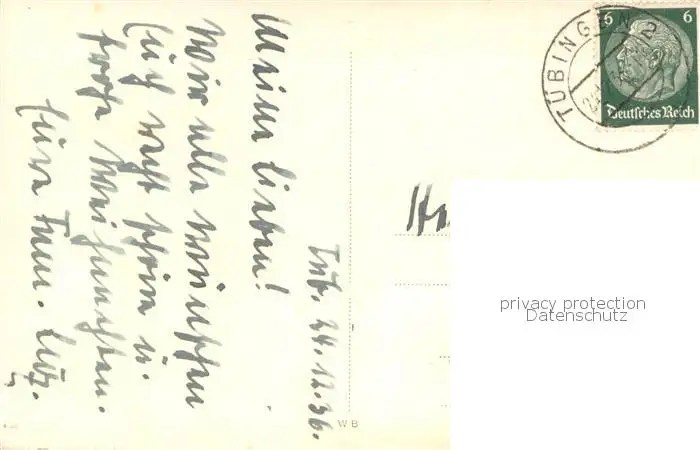 Tüb. 24.12.36.
Meine Lieben!
Wir alle wünschen
Euch recht schöne u.
frohe Weihnachten.
Eure Fam.
W B
TÜBINGEN 2
6 6
Deutsches Reich
privacy protection
Datenschutz